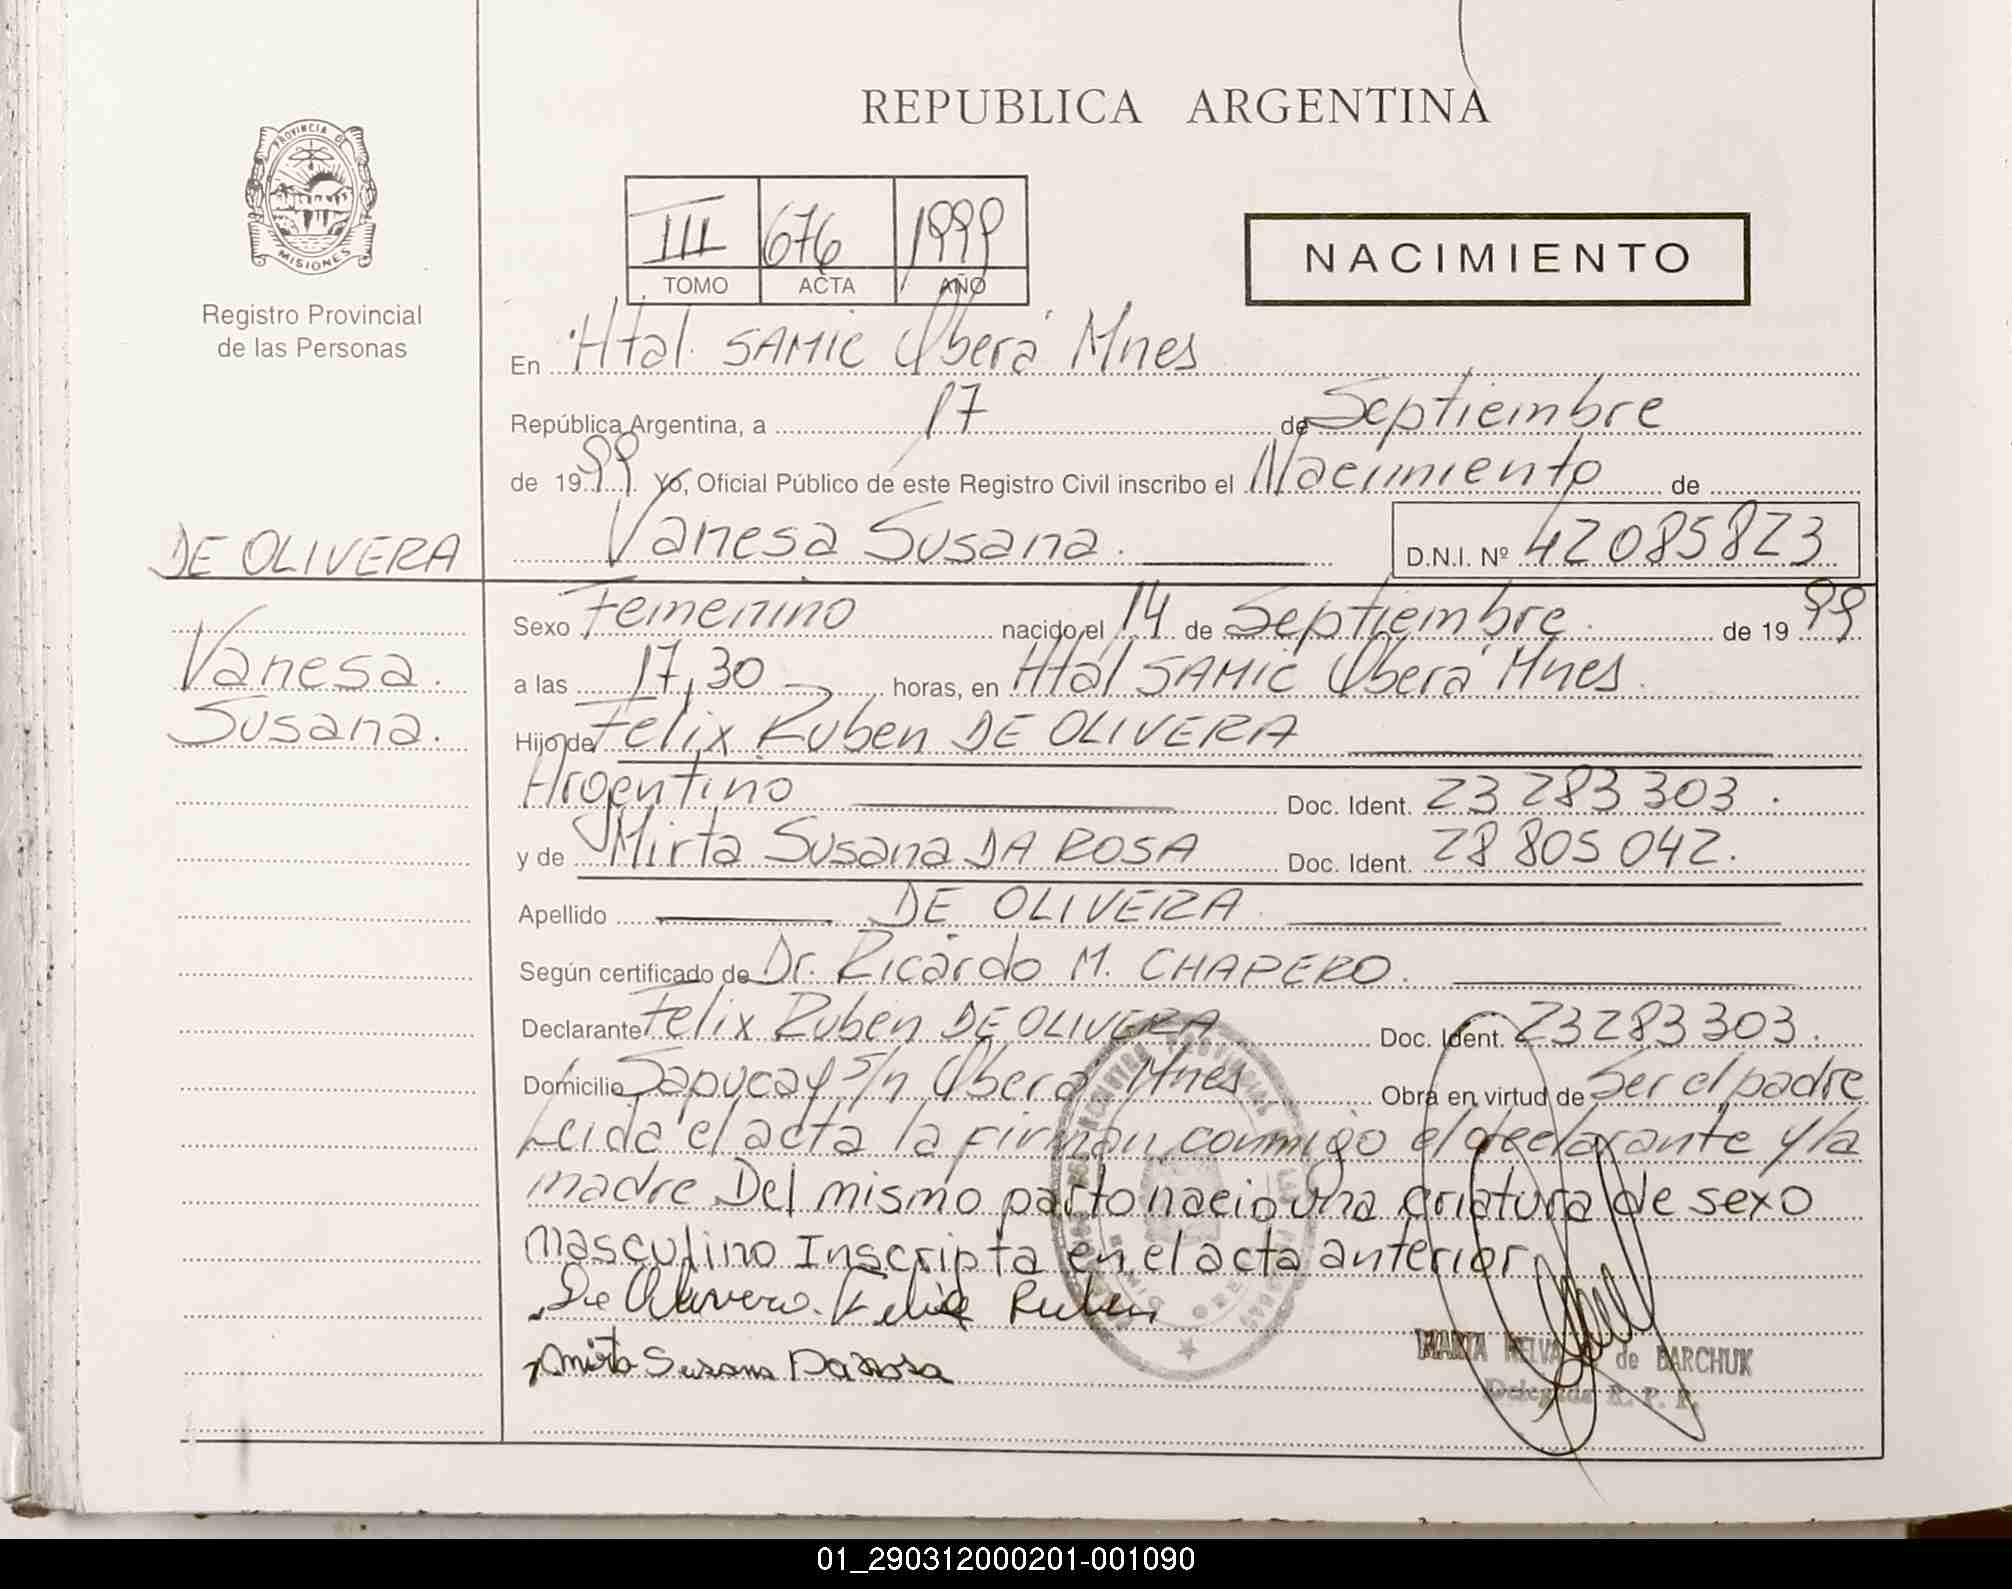 REPUBLICA ARGENTINA
PROVINCIA DE
MISIONES
Registro Provincial
de las Personas
III 676 1999
TOMO ACTA AÑO
NACIMIENTO
En Htal. SAMIC Oberá Mnes
República Argentina, a 17 de Septiembre
de 1999 Yo, Oficial Público de este Registro Civil inscribo el Nacimiento de
DE OLIVERA
Vanesa Susana. D.N.I. Nº 42085823
Vanesa.
Susana.
Sexo Femenino nacido el 14 de Septiembre. de 1999
a las 17,30 horas, en Htal SAMIC Oberá Mnes.
Hijo de Felix Ruben DE OLIVERA
Argentino Doc. Ident. 23 283 303.
y de Mirta Susana DA ROSA Doc. Ident. 28 805 042.
Apellido DE OLIVERA.
Según certificado de Dr. Ricardo M. CHAPERO.
Declarante Felix Ruben DE OLIVERA Doc. Ident. 23283303.
Domicilio Sapucay s/n Oberá Mnes Obra en virtud de Ser el padre
Leida el acta la firman conmigo el declarante y la
madre Del mismo parto nacio una criatura de sexo
masculino Inscripta en el acta anterior
De Olivera. Felix Ruben
Mirta Susana Da Rosa
MARIA de BARCHUK
Delegada R. P. P.
01_290312000201-001090